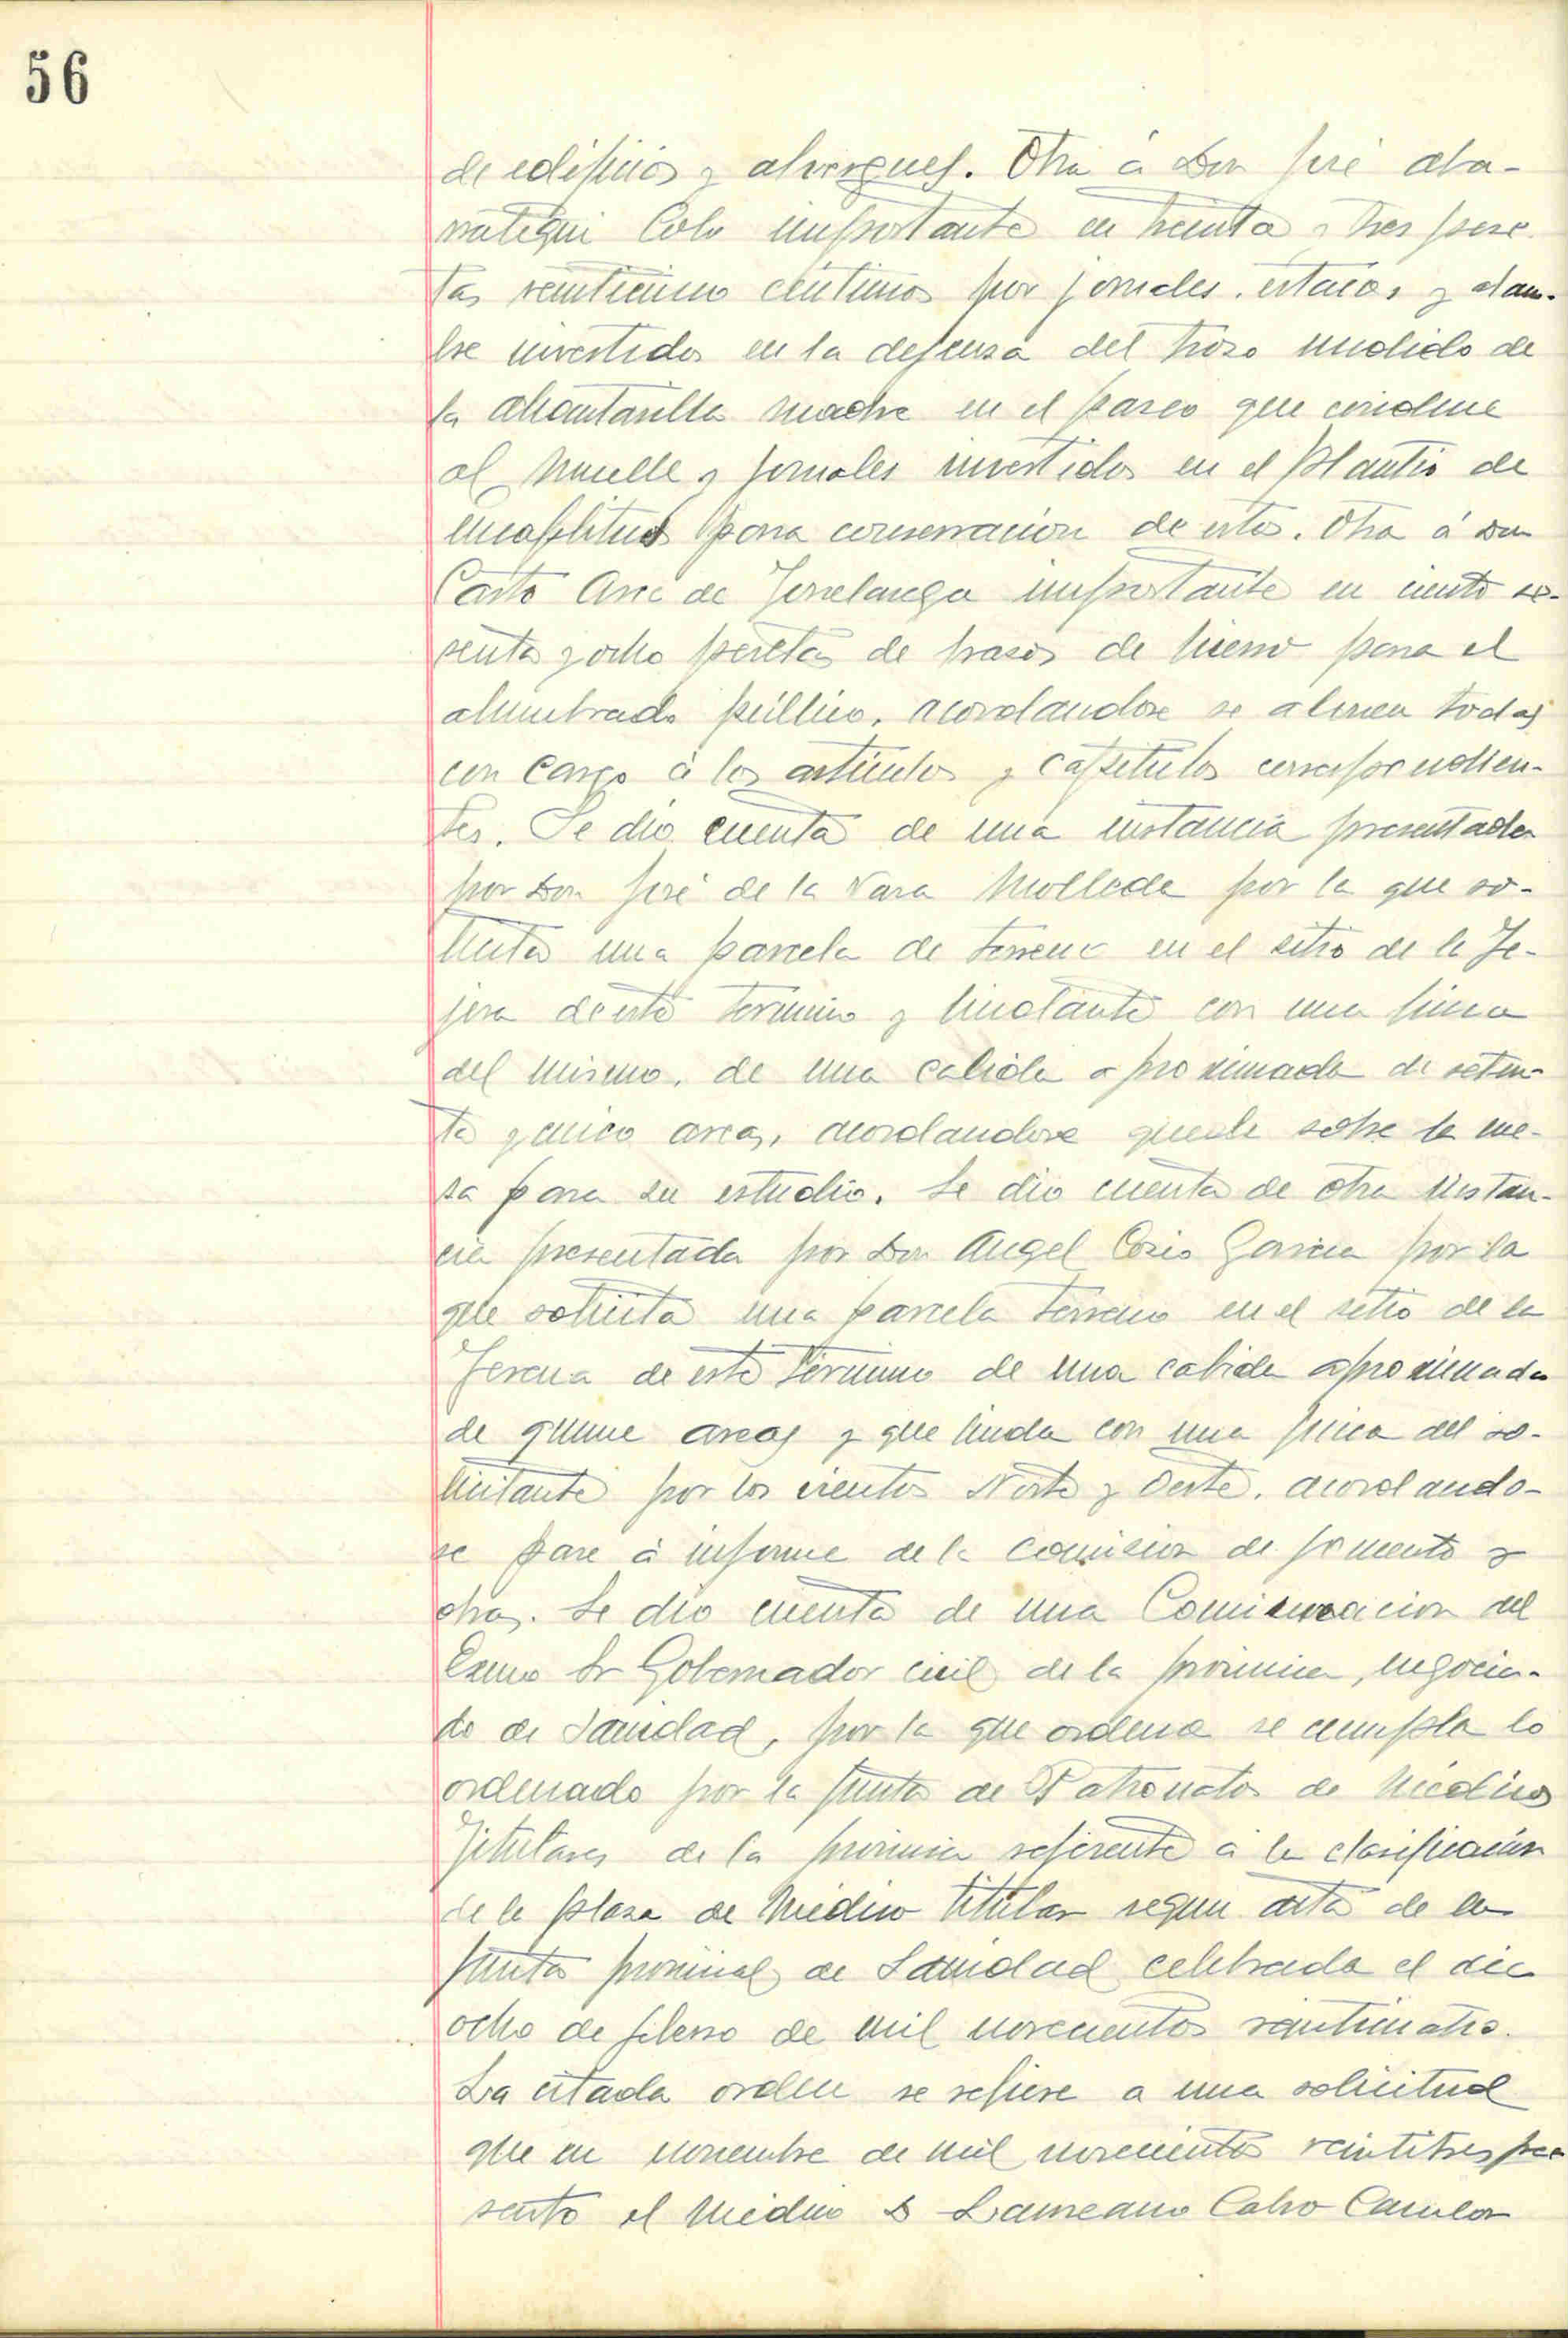 56
de edificios y alvergues. Otra á Don José aba-
rrategui Colo importante en treinta y tres pese-
tas veinticinco centimos por jornales, estacas y alam-
bre invertidos en la defensa del trozo undido de
la alcantarilla madre en el paseo que conduce
al muelle y jornales invertidos en el Plantio de
eucaplitus para conservacion de estos. Otra á Don
Casto Arce de Torrelavega importante en ciento se-
senta y ocho pesetas de brazos de hierro para el
alumbrado público, acordandose se abonen todas
con cargo á los articulos y capitulos correspondien-
tes. Se dio cuenta de una instancia presentada
por Don José de la Vara Molleda por la que so-
licita una parcela de terreno en el sitio de la Te-
jera de este termino y lindante con una finca
del mismo, de una cabida aproximada de seten-
ta y cinco areas, acordandose quede sobre la me-
sa para su estudio. Se dio cuenta de otra instan-
cia presentada por Don Angel Cosio Garcia por la
que solicita una parcela terreno en el sitio de la
de este termino de una cabida aproximada
de quince areas y que linda con una finca del so-
licitante por los vientos Norte y Oeste, acordando-
se pase á informe de la comision de fomento y
obras. Se dio cuenta de una Comunicacion del
Excmo Sr Gobernador civil de la provincia, negocia-
do de Sanidad, por la que ordena se cumpla lo
ordenado por la Junta de Patronatos de Medicos
Titulares de la provincia referente á la clasificacion
de la plaza de Medico titular segun acta de la
Junta provincial de Sanidad celebrada el dia
ocho de febrero de mil novecientos veinticuatro.
La citada orden se refiere a una solicitud
que en noviembre de mil novecientos veintitres pre-
sento el Medico D Laureano Calvo